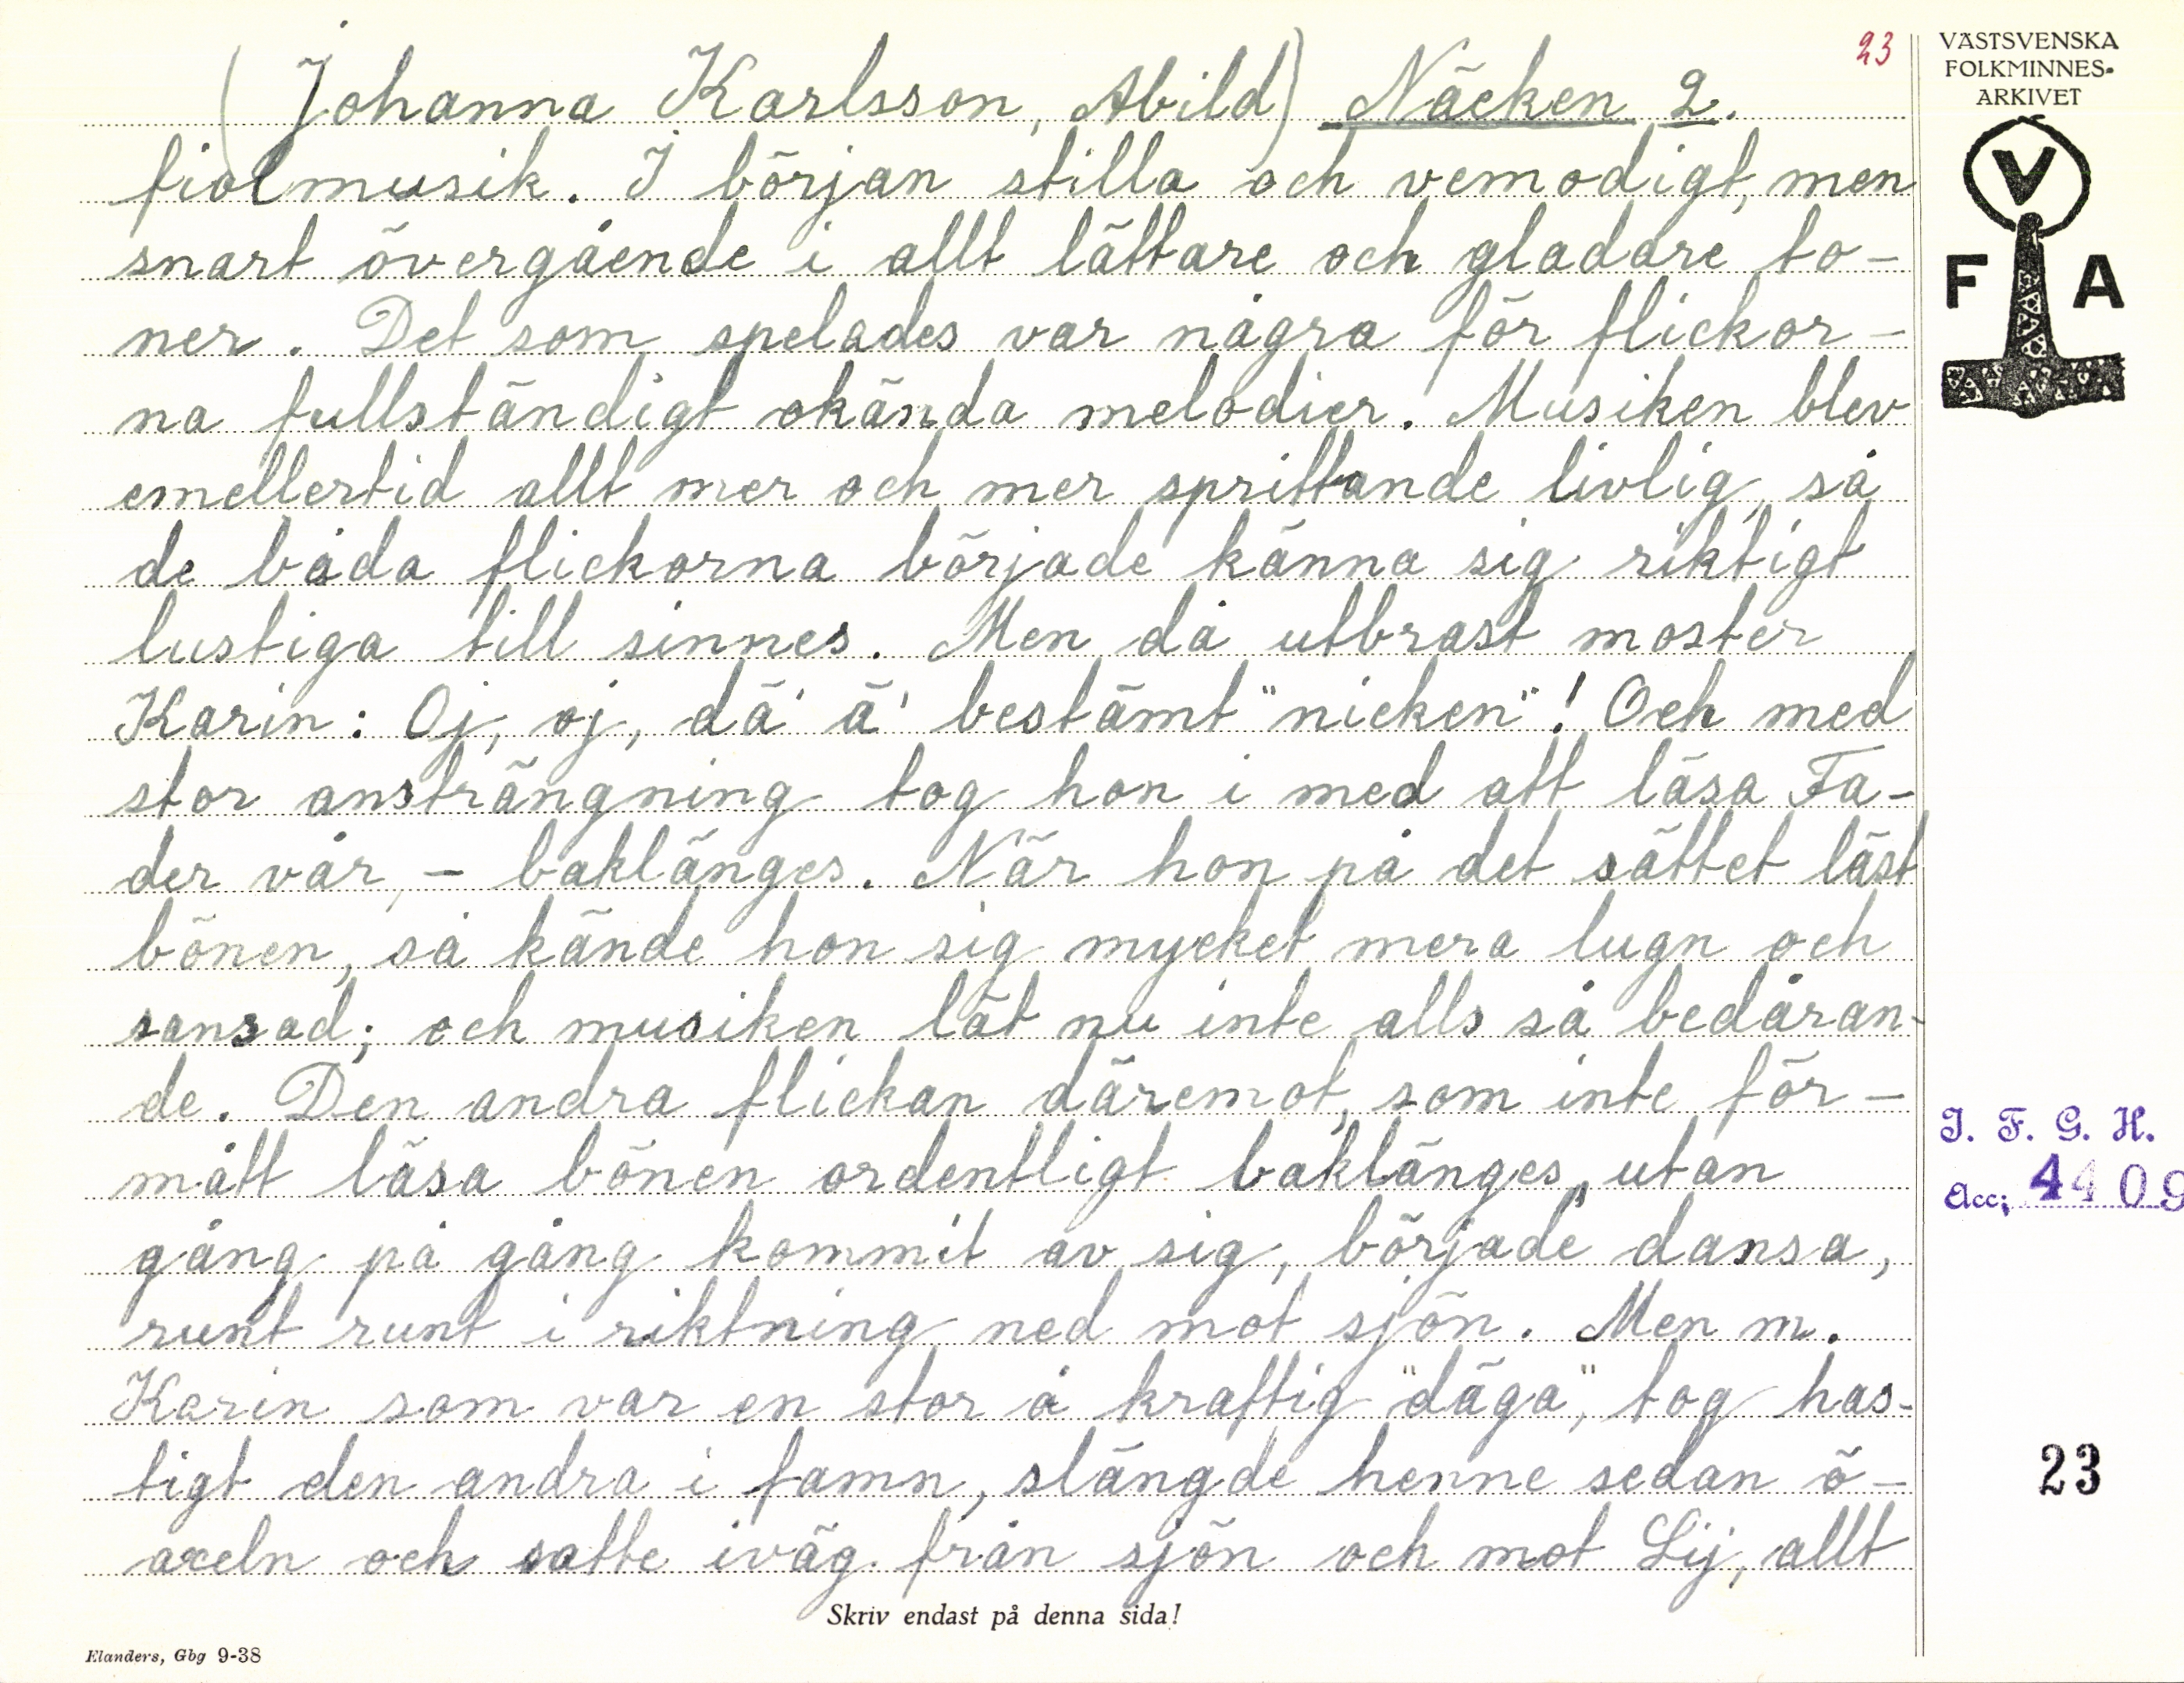 23
VÄSTSVENSKA
FOLKMINNES-
ARKIVET
V
F A
(Johanna Karlsson, Abild) Näcken 2.
fiolmusik. I början stilla och vemodigt, men
snart övergående i allt lättare och gladare to-
ner. Det som spelades var några för flickor-
na fullständigt okända melodier. Musiken blev
emellertid allt mer och mer sprittande livlig, så
de båda flickorna började känna sig riktigt
lustiga till sinnes. Men då utbrast moster
Karin: Oj, oj, dä' ä' bestämt "nicken"! Och med
stor ansträngning tog hon i med att läsa Fa-
der vår, - baklänges. När hon på det sättet läst
bönen, så kände hon sig mycket mera lugn och
sansad; och musiken lät nu inte alls så bedåran-
de. Den andra flickan däremot, som inte för-
mått läsa bönen ordentligt baklänges, utan
gång på gång kommit av sig, började dansa,
runt runt i riktning ned mot sjön. Men m.
Karin som var en stor å kraftig "däga", tog has-
tigt den andra i famn, slängde henne sedan ö-
axeln och satte iväg från sjön och mot Lij, allt
I. F. G. H.
Acc; 4409
23
Skriv endast på denna sida!
Elanders, Gbg 9-38